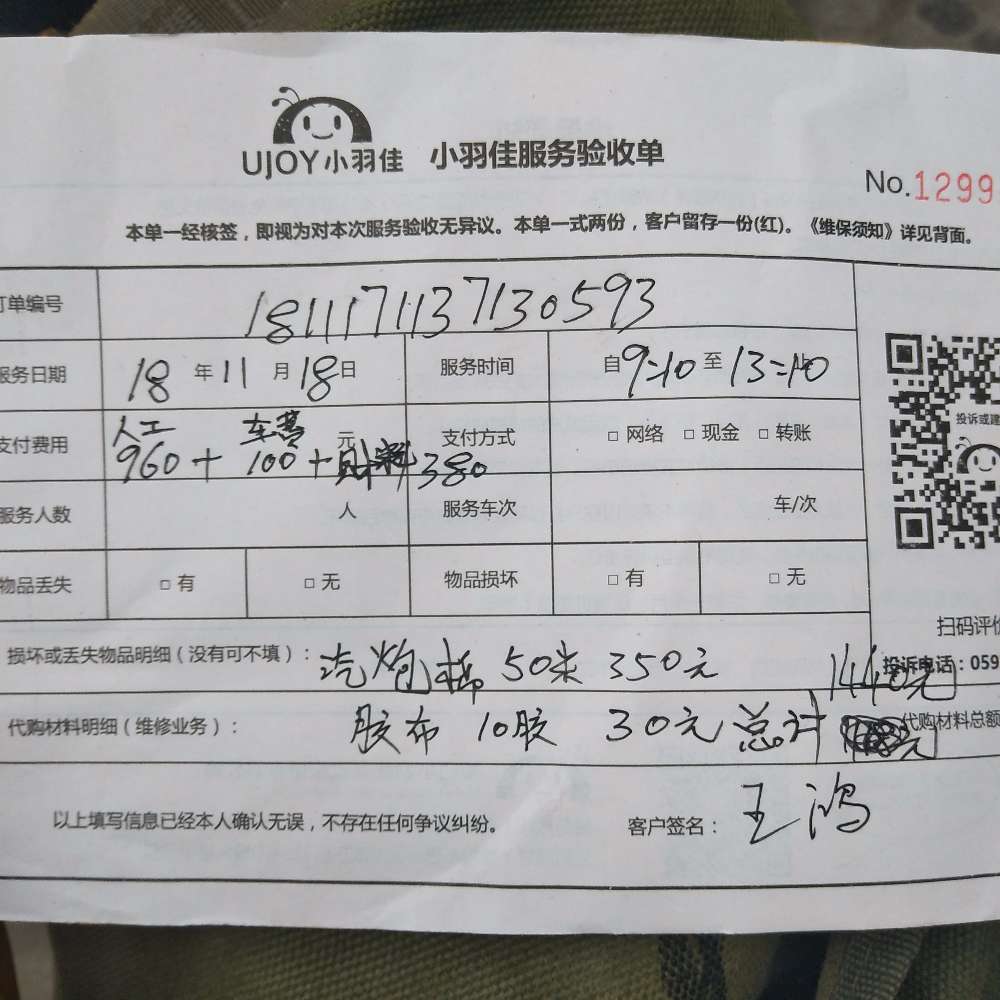 UJOY小羽佳 小羽佳服务验收单
No.1299
本单一经核签，即视为对本次服务验收无异议。本单一式两份，客户留存一份(红)。《维保须知》详见背面。
订单编号 1811171137130593
服务日期 18 年 11 月 18 日 服务时间 自 9:10 至 13:10 止
支付费用 人工 960 + 车费 100 + 财料 380 元 支付方式 □ 网络 □ 现金 □ 转账
服务人数 人 服务车次 车/次
物品丢失 □ 有 □ 无 物品损坏 □ 有 □ 无
投诉或建
扫码评价
损坏或丢失物品明细（没有可不填）： 汽炮棉 50米 350元 1440元 投诉电话：059
代购材料明细（维修业务）： 胶布 10胶 30元 总计 代购材料总额
以上填写信息已经本人确认无误，不存在任何争议纠纷。 客户签名： 王鸿